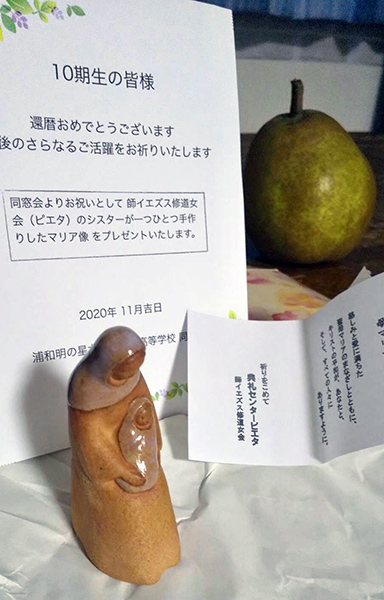 10期生の皆様
還暦おめでとうございます
後のさらなるご活躍をお祈りいたします
同窓会よりお祝いとして 師イエズス修道女
会（ピエタ）のシスターが一つひとつ手作
りしたマリア像 をプレゼントいたします。
2020年 11月吉日
浦和明の星 高等学校 同
慈しみと愛に満ちた
聖母マリアの
キリストの平和が、あなたと、
そして、すべての人々に
ありますように。
祈りをこめて
典礼センターピエタ
師イエズス修道女会